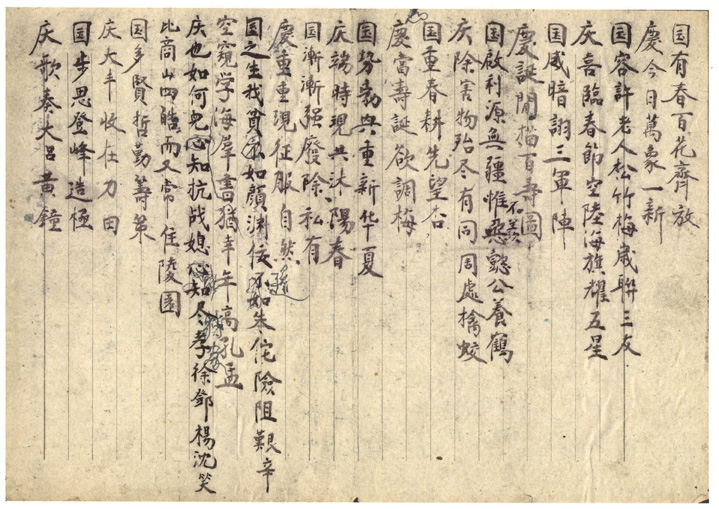 国有春百花齊放
慶今日萬象一新
国容許老人松竹梅歲聯三友
庆喜臨春節空陸海旗耀五星
国威暗詡三軍陣
慶誕閒描百壽圖
国啟利源無疆惟不羨懿公養鶴
庆除害物殆尽有同周處擒蛟
国重春耕先望杏
慶當壽誕欲調梅
国勢勇興重新华夏
庆端時現共沐陽春
国漸漸强廢除私有
慶重重現征服自然
国之生我貫如顏淵佞不如朱佗險阻艱辛
空窺学海羣書猶幸年高孔孟
庆也如何兒心知抗战媳心知尽孝徐鄧楊沈笑
比商山四皓而又常住陵園
国多賢哲勤籌策
庆大丰收在刀田
国步思登峰造極
庆歌奏大呂黄鐘